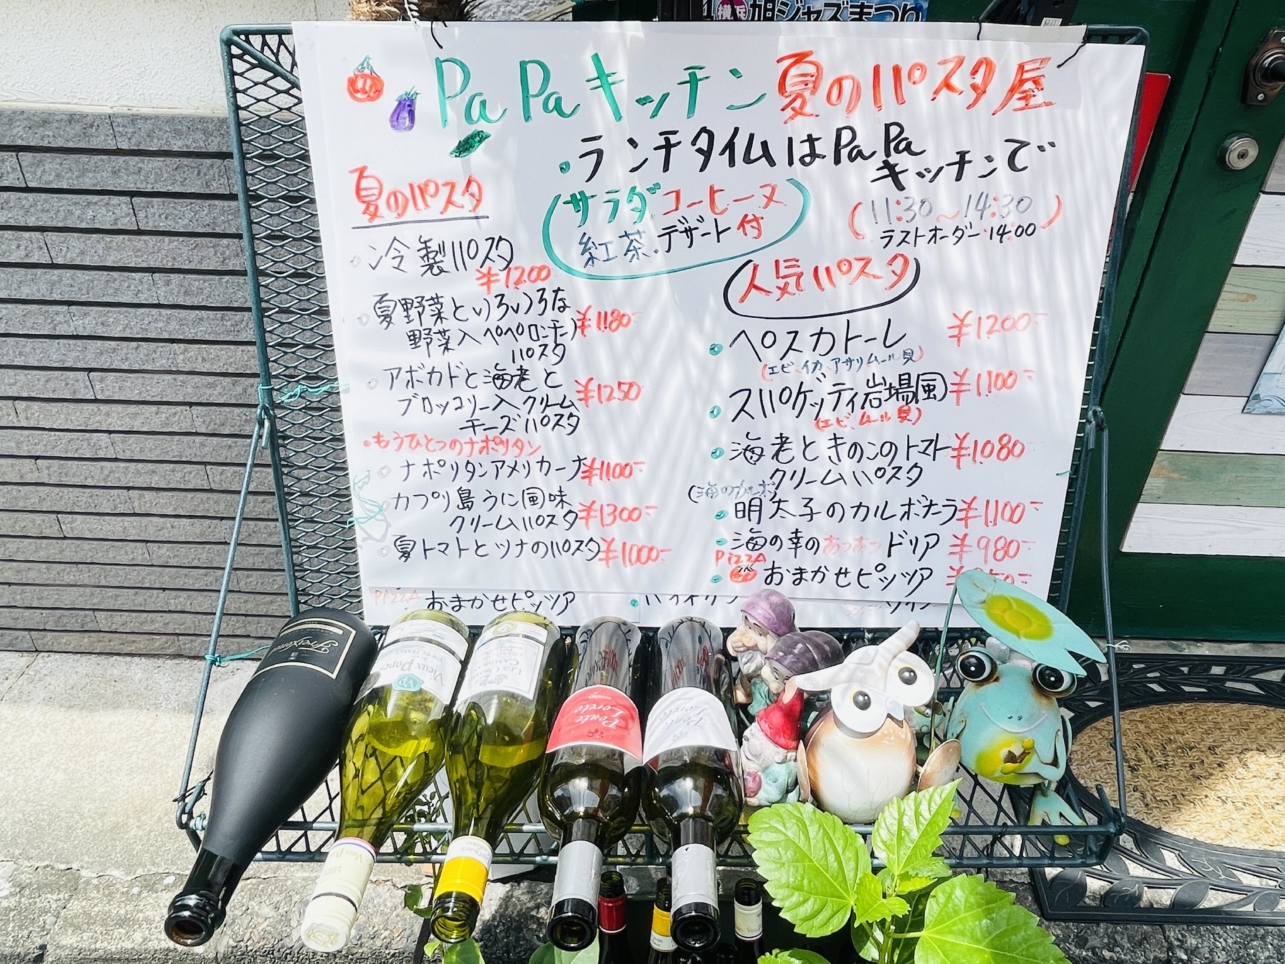 横浜 旭ジャズまつり
PaPaキッチン 夏のパスタ屋
・ランチタイムはPaPa
キッチンで
(サラダ コーヒー又
紅茶、デザート付)
(11:30～14:30)
ラストオーダー14:00
夏のパスタ
冷製パスタ
¥1200
夏野菜といろいろな
野菜入ペペロンチーノ ¥1180-
パスタ
アボカドと海老と
ブロッコリー入クリーム ¥1250
チーズパスタ
・もうひとつのナポリタン
ナポリタンアメリカーナ ¥1100-
カプリ島うに風味
クリームパスタ ¥1300-
夏トマトとツナのパスタ ¥1000-
PIZZA おまかせピッツア
人気パスタ
・ペスカトーレ ¥1200-
(エビ、イカ、アサリ、ムール貝)
・スパゲッティ岩場風 ¥1100-
(エビ、ムール貝)
・海老ときのこのトマト ¥1080
クリームパスタ
・明太子のカルボナーラ ¥1100-
・海の幸のあつあつドリア ¥980-
PIZZA
・おまかせピッツア
Ponte
Loreto